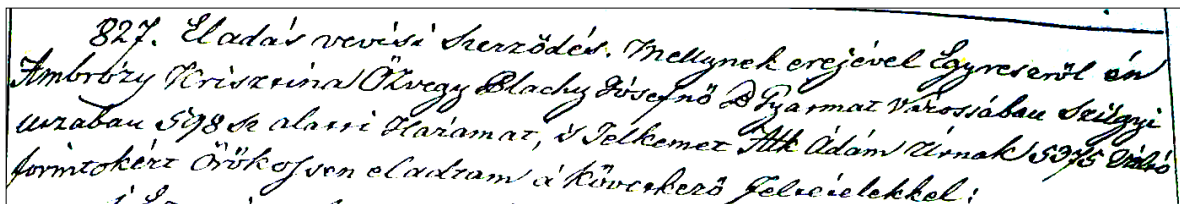 827. Eladás vevési Szerződés. Mellynek erejével Egyreszről én
Ambrózy Krisztina Özvegy Blachy Jósefnő B Gyarmat Várossában Szügyi
uczában 598 sz alatti Házamat, 's Telkemet Alk Ádám Úrnak 5375 Váltó
forintokért Örökössen eladtam á következő feltételekkel: